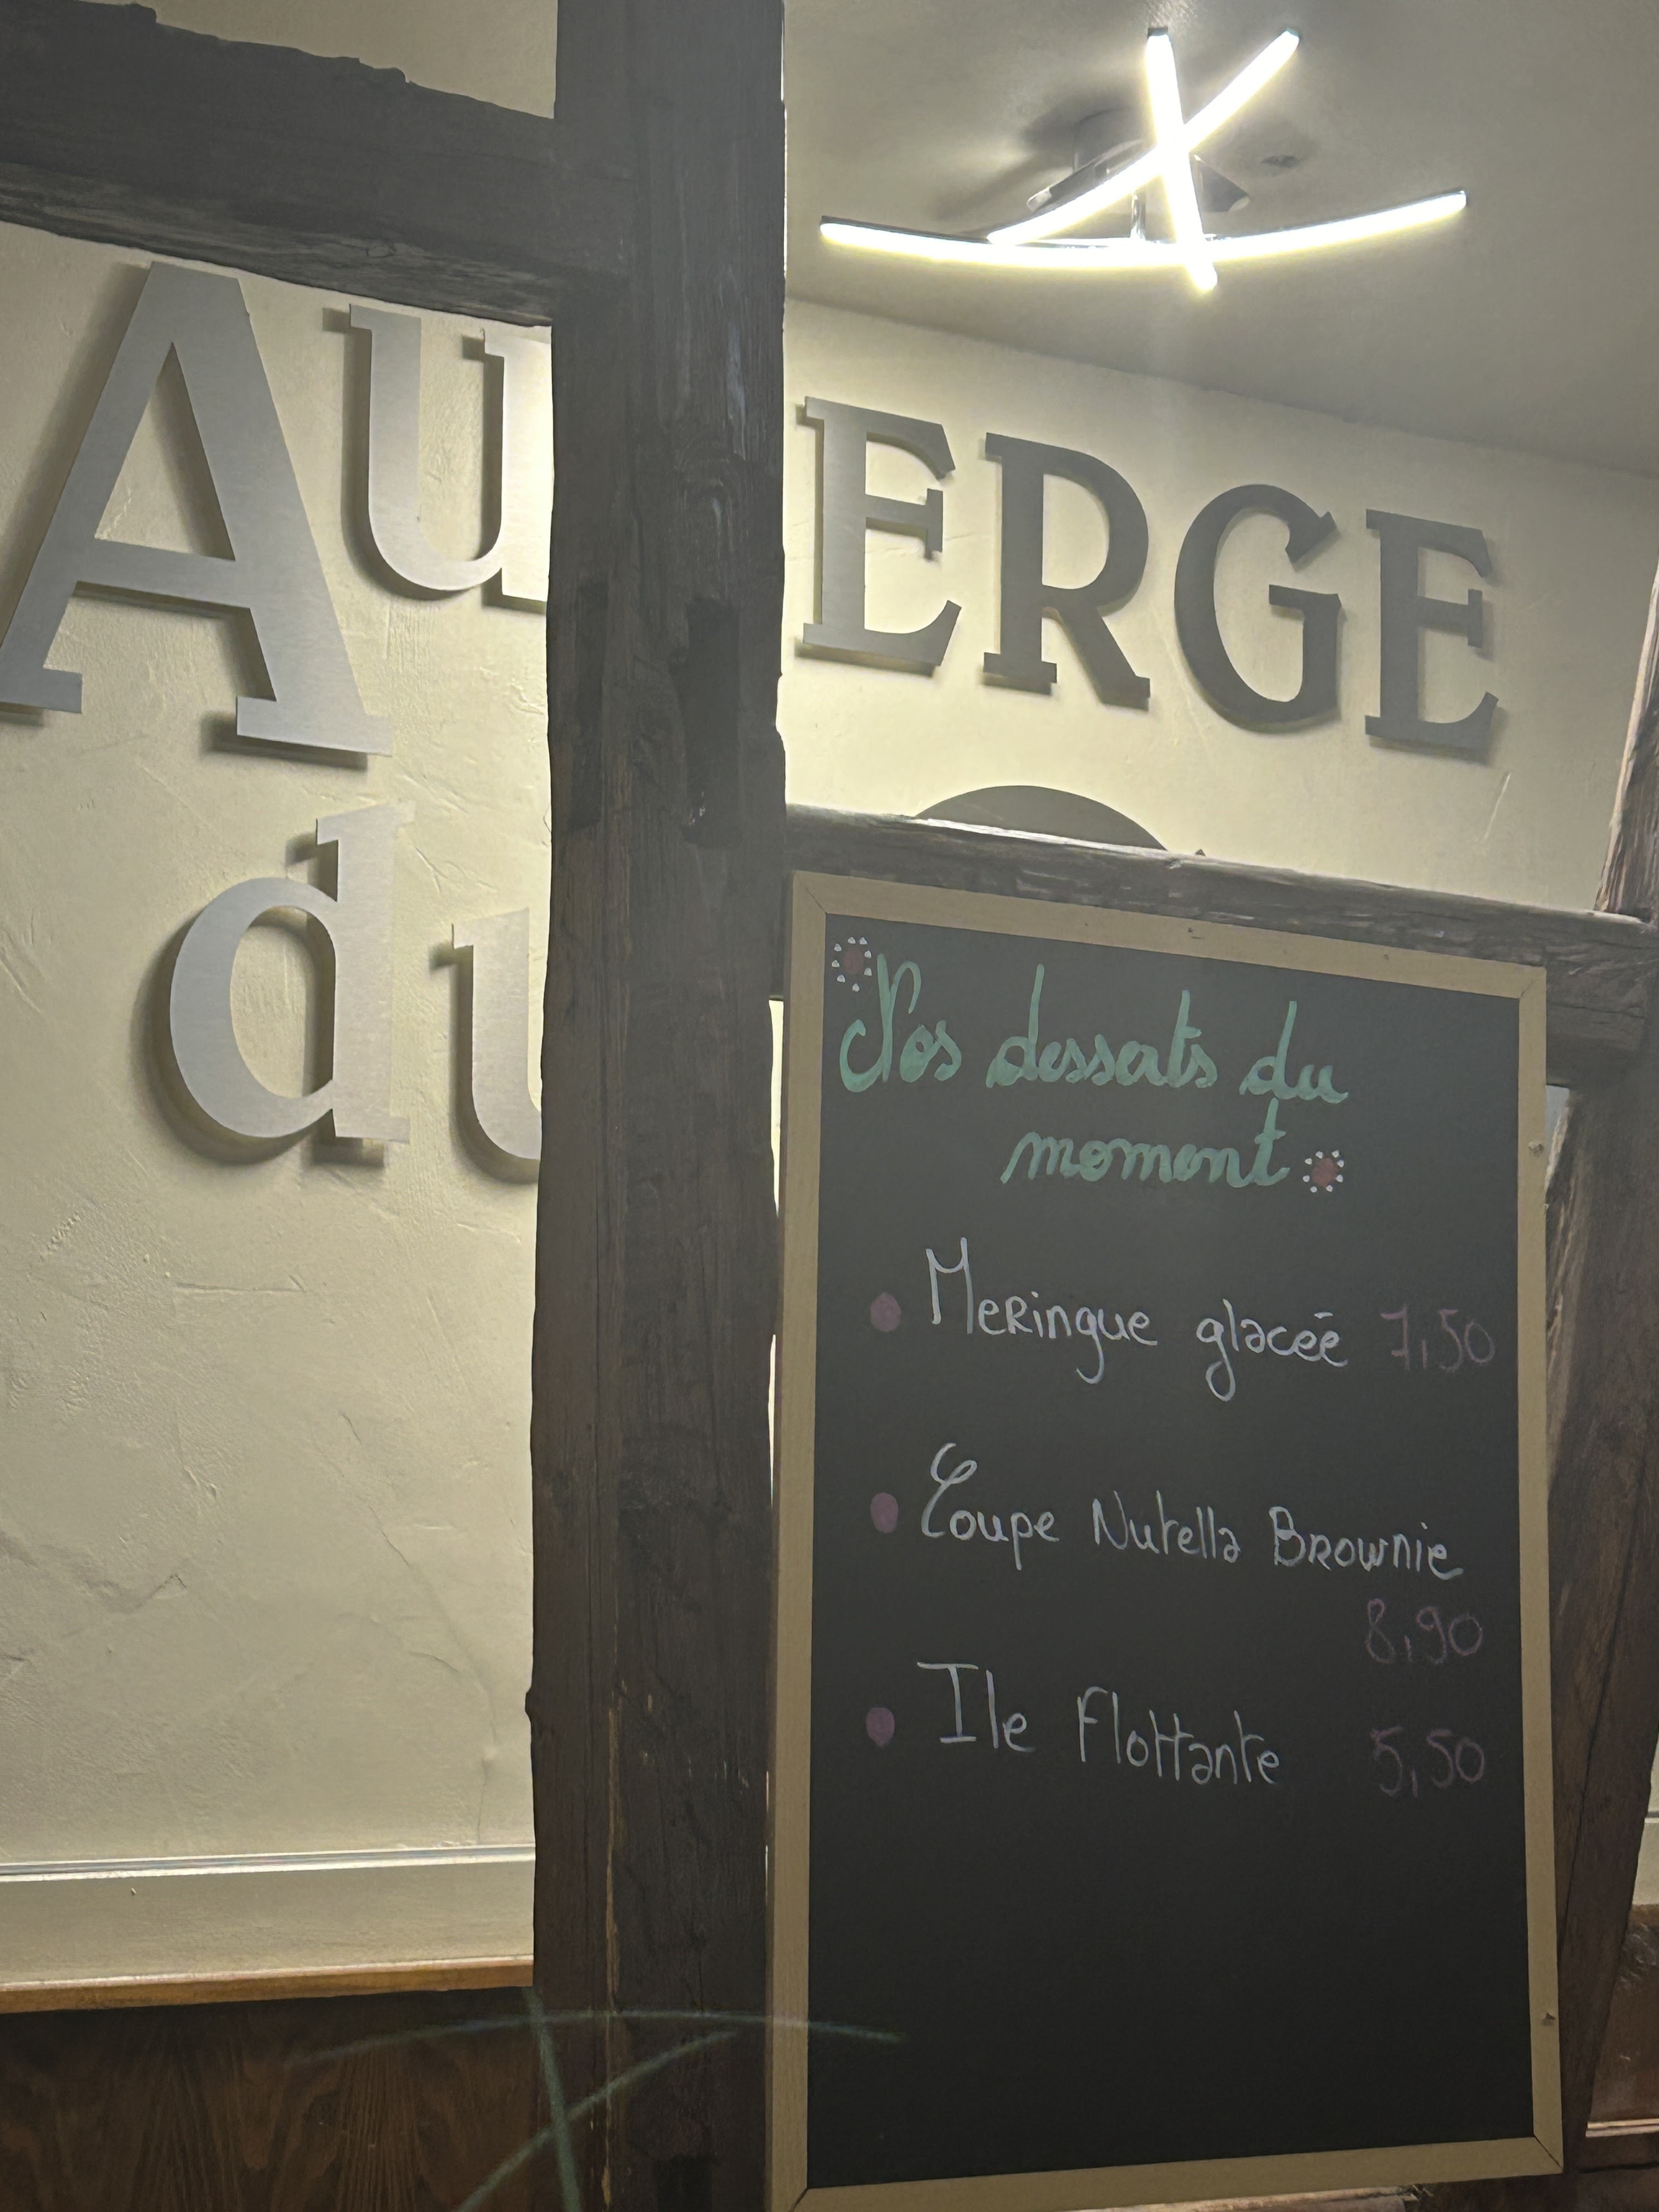 Au ERGE
du
Nos desserts du
moment
Meringue glacée 7,50
Coupe Nutella Brownie
8,90
Ile Flottante 5,50